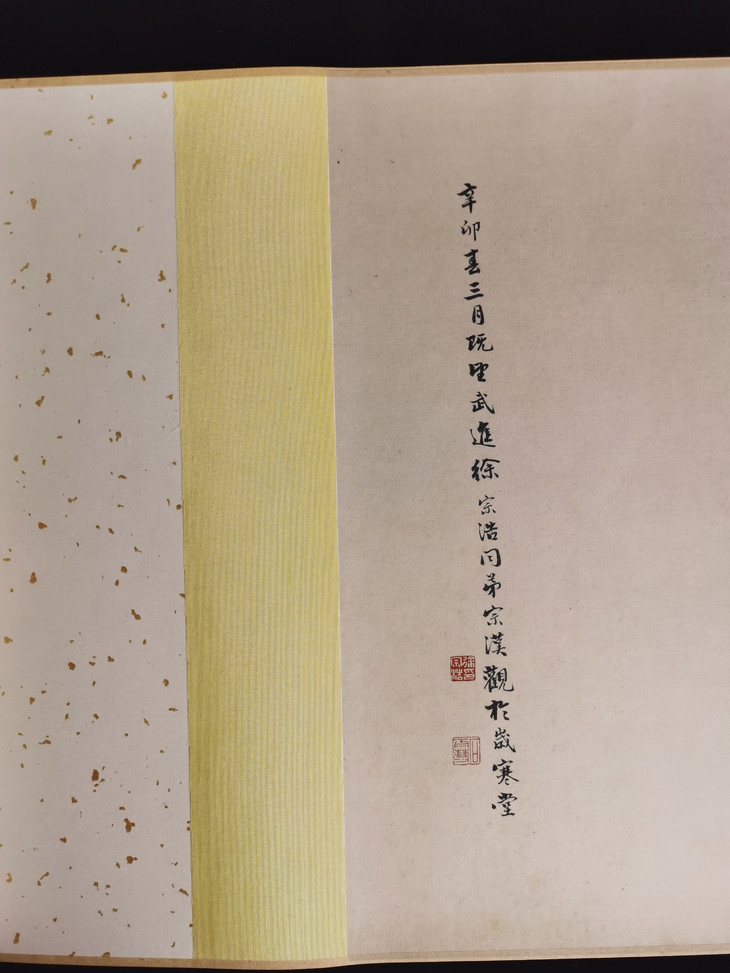 辛卯春三月既望武進徐宗浩同弟宗漢觀於歲寒堂